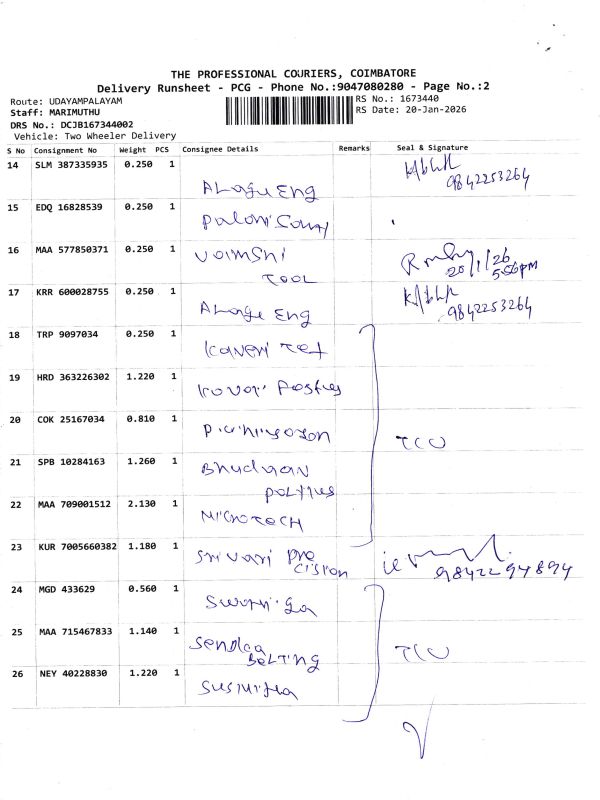 THE PROFESSIONAL COURIERS, COIMBATORE
Delivery Runsheet - PCG - Phone No.:9047080280 - Page No.:2
Route: UDAYAMPALAYAM
RS No.: 1673440
Staff: MARIMUTHU
RS Date: 20-Jan-2026
DRS No.: DCJB167344002
Vehicle: Two Wheeler Delivery
S No Consignment No Weight PCS Consignee Details Remarks Seal & Signature
14 SLM 387335935 0.250 1 ALagu Eng 9842253264
15 EDQ 16828539 0.250 1 Palani
16 MAA 577850371 0.250 1 Vaimshi TOOL 20/1/26 5:56pm
17 KRR 600028755 0.250 1 ALagu Eng 9842253264
18 TRP 9097034 0.250 1 Kaveri Tex
19 HRD 363226302 1.220 1
20 COK 25167034 0.810 1
21 SPB 10284163 1.260 1
22 MAA 709001512 2.130 1 MICROTECH
23 KUR 7005660382 1.180 1 Srivari PRE CISION 9842294894
24 MGD 433629 0.560 1
25 MAA 715467833 1.140 1 BELTING
26 NEY 40228830 1.220 1 SUSMITHA